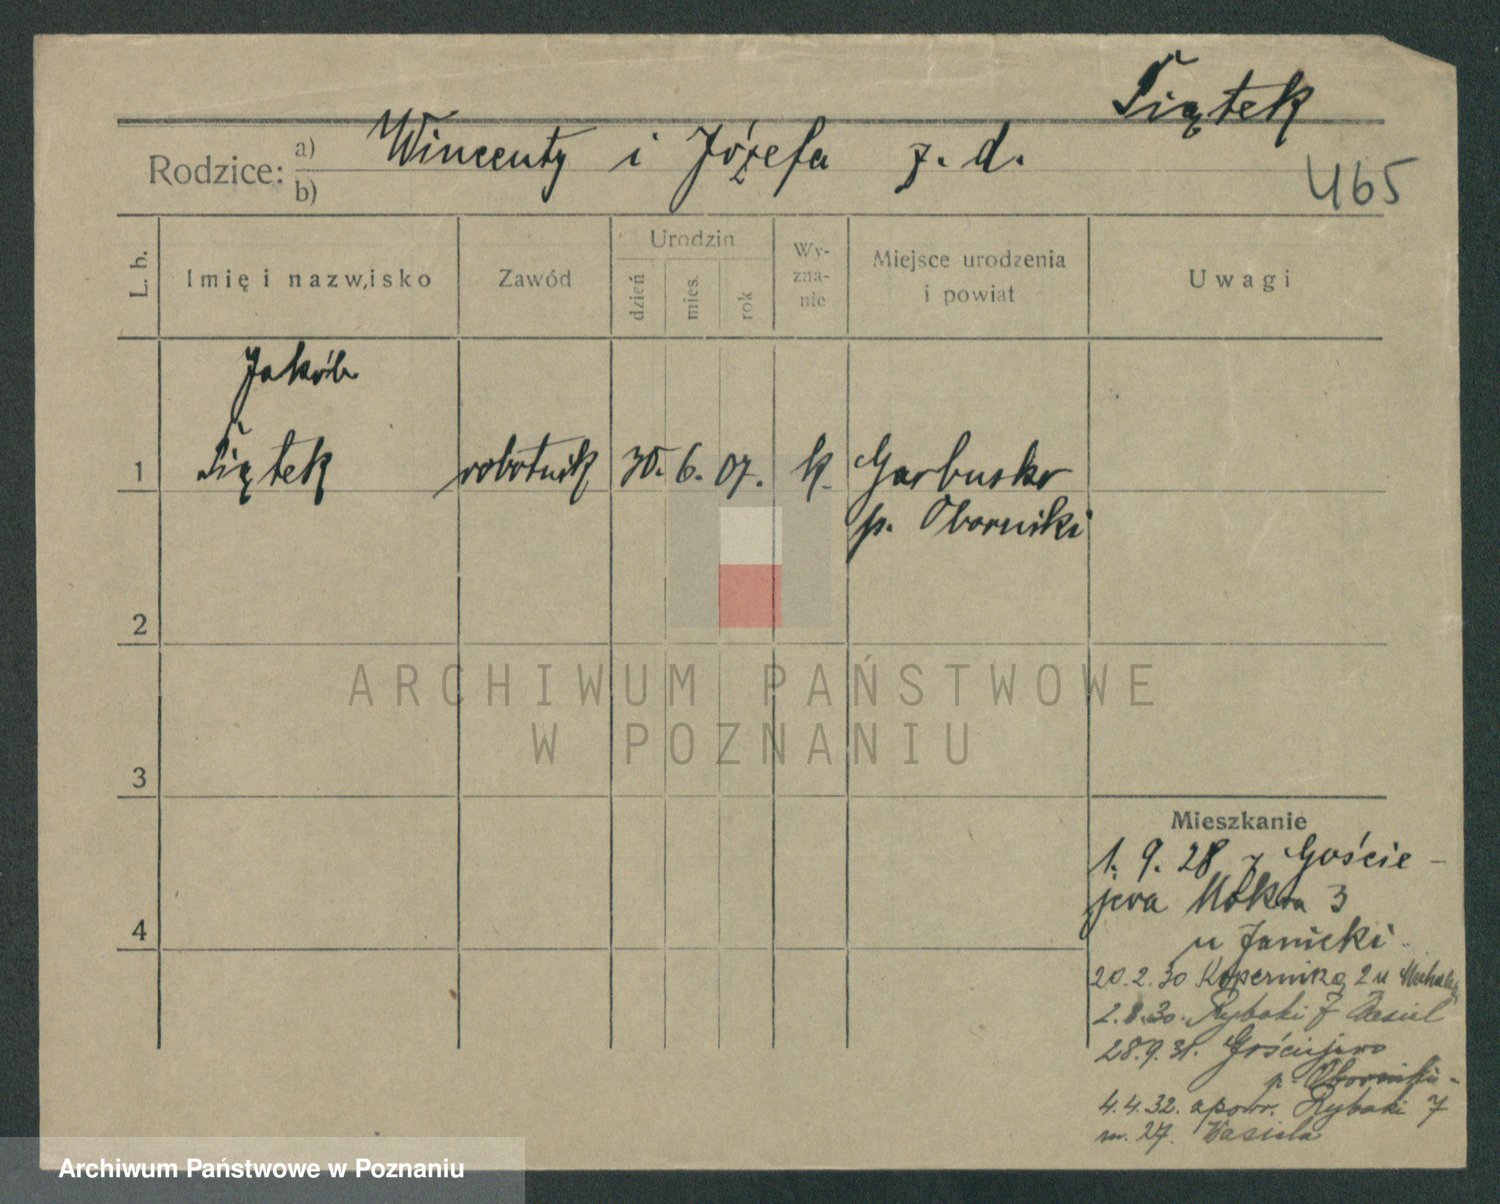 Piątek
Rodzice: a) Wincenty i Józefa z. d.
b)
465
L. b.
Imię i nazwisko
Zawód
Urodzin
dzień
mies.
rok
Wy-
zna-
nie
Miejsce urodzenia
i powiat
Uwagi
Jakób
1 Piątek robotnik 30. 6. 07. k. Garbusko
p. Oborniki
2
ARCHIWUM PAŃSTWOWE
W POZNANIU
3
Mieszkanie
1. 9. 28 z Goście-
jewa Mokra 3
4
u Janicki
20.2.30 Kopernika 2 u
2.8.30. Rybaki 7
28.9.31. Gościejewo
p. Oborniki
4.4.32. z powr. Rybaki 7
m. 27. Wasiela
Archiwum Państwowe w Poznaniu